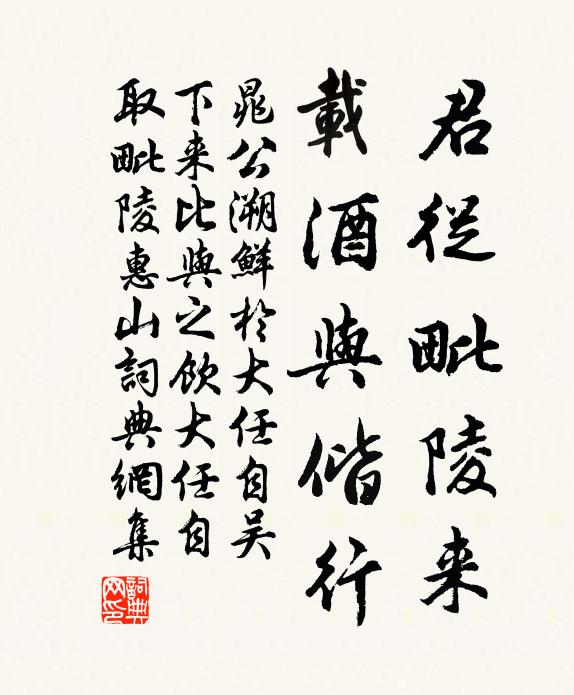 君從毗陵来
載酒與偕行
晁公溯鮮於大任自吴
下来比與之飲大任自
取毗陵惠山詞典網集
詞典網印